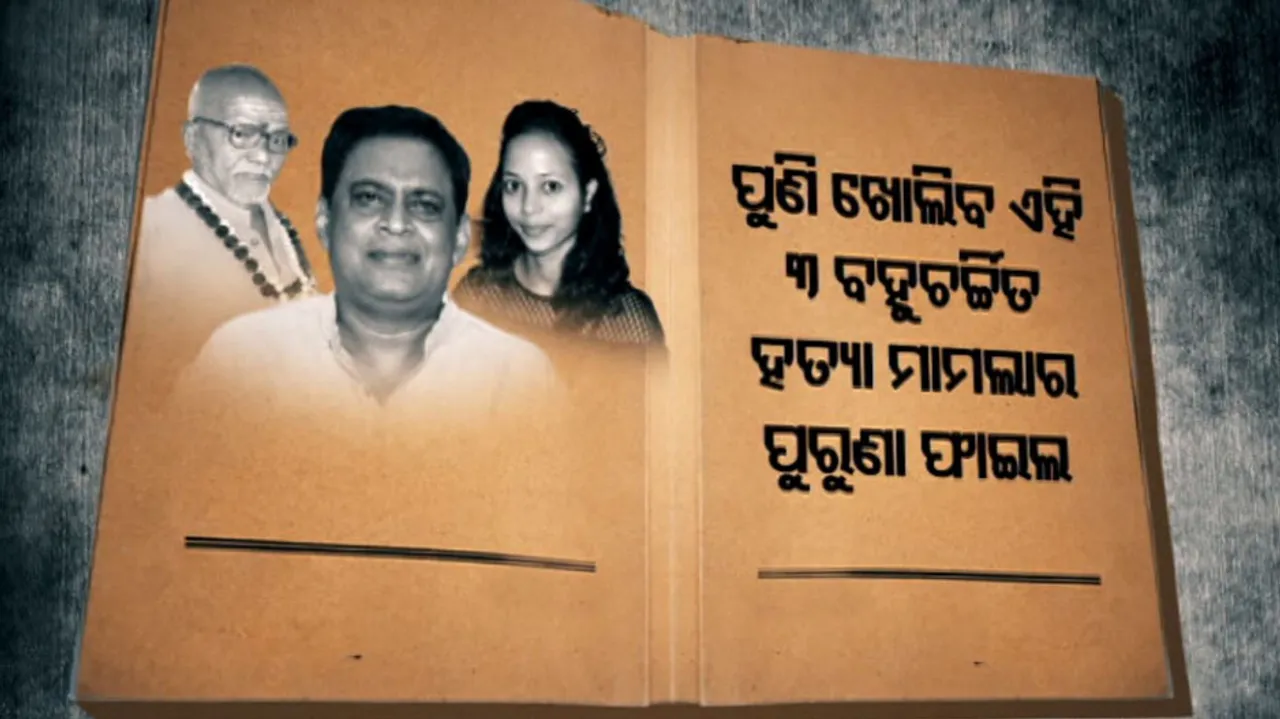 ପୁଣି ଖୋଲିବ ଏହି
୩ ବହୁଚର୍ଚ୍ଚିତ
ହତ୍ୟା ମାମଲାର
ପୁରୁଣା ଫାଇଲ